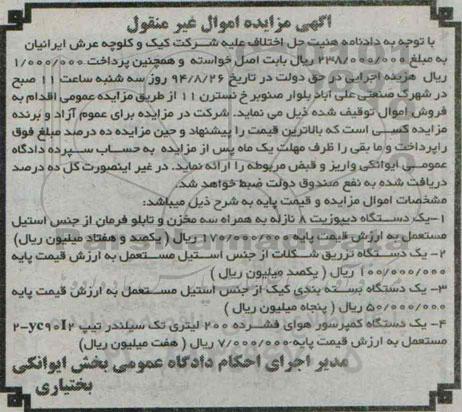 آگهی مزایده اموال غیر منقول
با توجه به دادنامه هیئت حل اختلاف علیه شرکت کیک و کلوچه عرش ایرانیان
به مبلغ ۲۳۸/۰۰۰/۰۰۰ ریال بابت اصل خواسته و همچنین پرداخت ۱/۰۰۰/۰۰۰
ریال هزینه اجرایی در حق دولت در تاریخ ۹۴/۸/۲۶ روز سه شنبه ساعت ۱۱ صبح
در شهرک صنعتی علی آباد بلوار صنوبر خ نسترن ۱۱ از طریق مزایده عمومی اقدام به
فروش اموال توقیف شده ذیل می نماید. شرکت در مزایده برای عموم آزاد و برنده
مزایده کسی است که بالاترین قیمت را پیشنهاد و حین مزایده ده درصد مبلغ فوق
راپرداخت و ما بقی را ظرف مهلت یک ماه پس از مزایده به حساب سپرده دادگاه
عمومی ایوانکی واریز و قبض مربوطه را ارائه نماید. در غیر اینصورت کل ده درصد
دریافت شده به نفع صندوق دولت ضبط خواهد شد.
مشخصات اموال مزایده و قیمت پایه به شرح ذیل میباشد:
۱-یک دستگاه دیپوزیت ۸ نازله به همراه سه مخزن و تابلو فرمان از جنس استیل
مستعمل به ارزش قیمت پایه ۱۷۰/۰۰۰/۰۰۰ ریال (یکصد و هفتاد میلیون ریال)
۲- یک دستگاه تزریق شکلات از جنس استیل مستعمل به ارزش قیمت پایه
۱۰۰/۰۰۰/۰۰۰ ریال ( یکصد میلیون ریال )
۳- یک دستگاه بسته بندی کیک از جنس استیل مستعمل به ارزش قیمت پایه
۵۰/۰۰۰/۰۰۰ ریال ( پنجاه میلیون ریال )
۴- یک دستگاه کمپرسور هوای فشرده ۲۰۰ لیتری تک سیلندر تیپ ۲-yc۹۰I۲
مستعمل به ارزش قیمت پایه ۷/۰۰۰/۰۰۰ ریال ( هفت میلیون ریال)
مدیر اجرای احکام دادگاه عمومی بخش ایوانکی
بختیاری